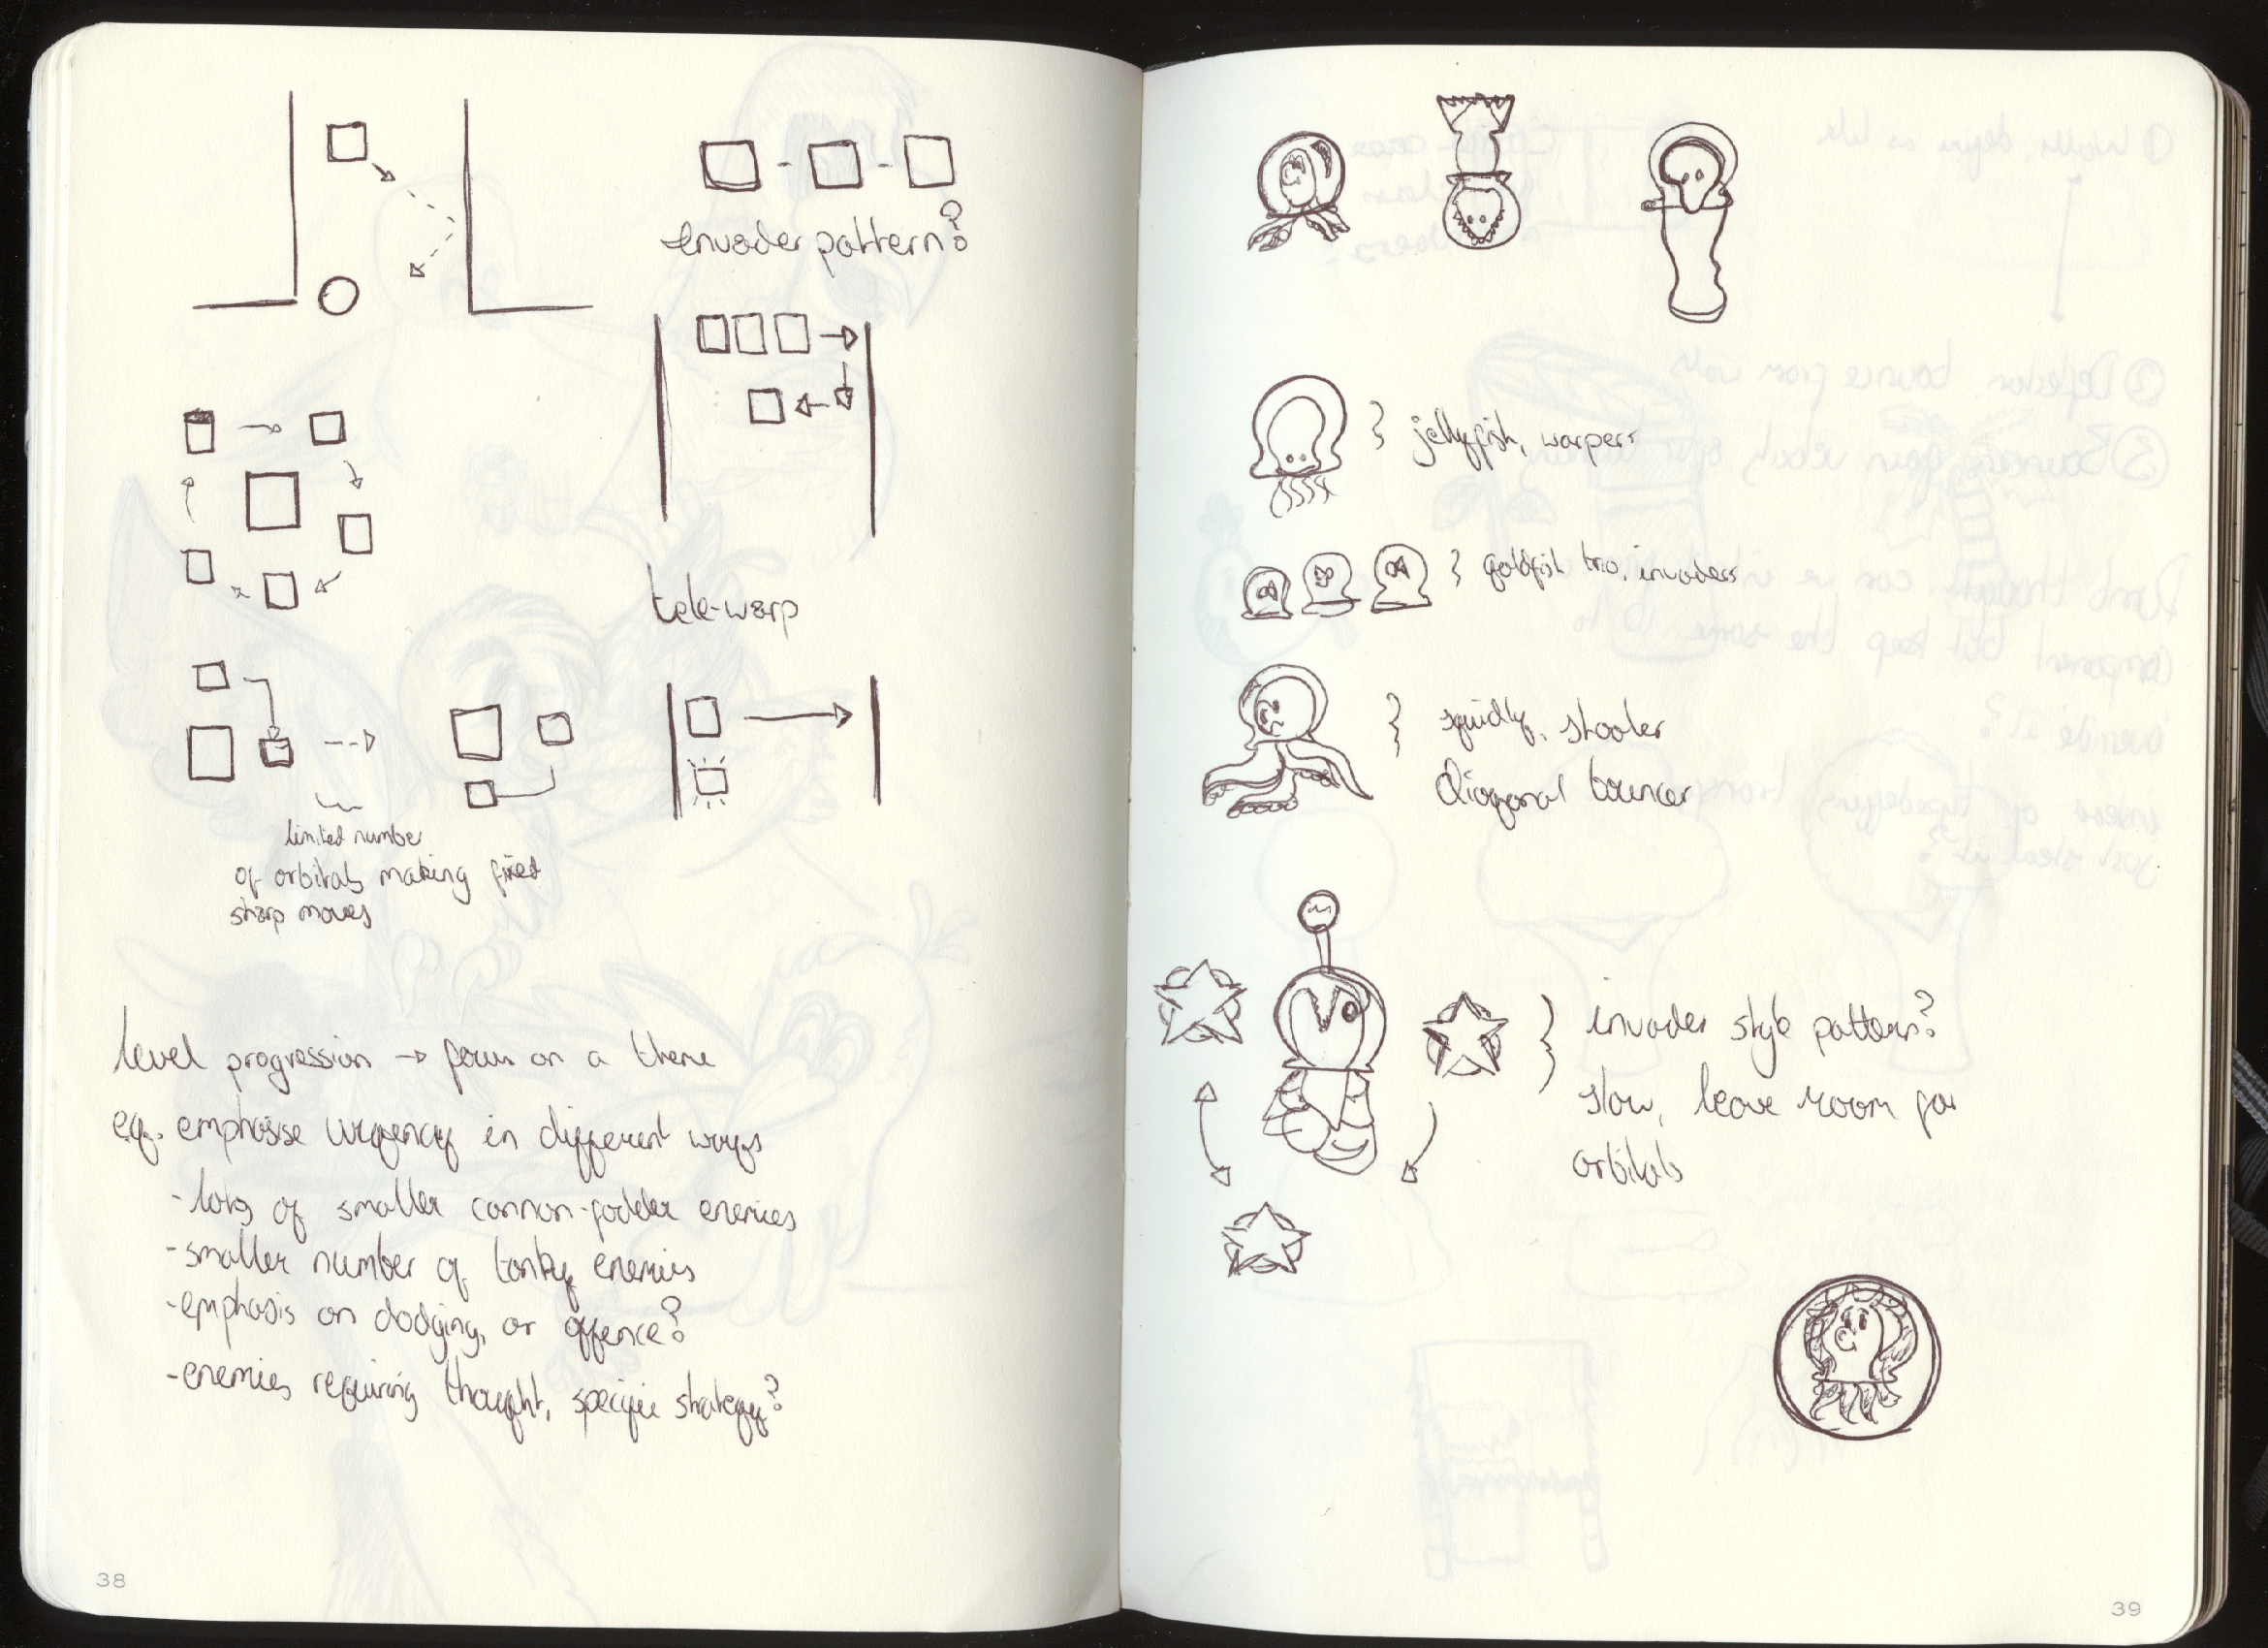 invader pattern?
tele-warp
limited number
of orbitals making fixed
sharp moves
level progression → focus on a theme
eg. emphasise urgency in different ways
-lots of smaller cannon-fodder enemies
-smaller number of tanky enemies
-emphasis on dodging, or offence?
-enemies requiring thought, specific strategy?
38
} jellyfish, warpers
} goldfish trio, invaders
} squidly, shooter
diagonal bouncer
} invader style pattern?
slow, leave room for
orbitals
39